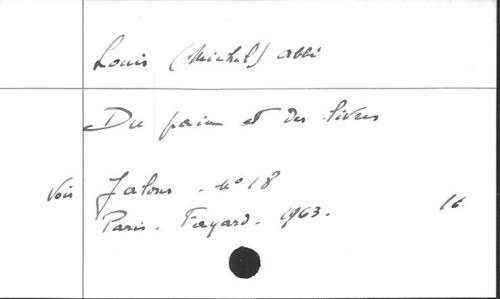 Louis (Michel) abbé
Du pain et des livres
voir Jalons . n° 18
Paris . Fayard . 1963 . 16